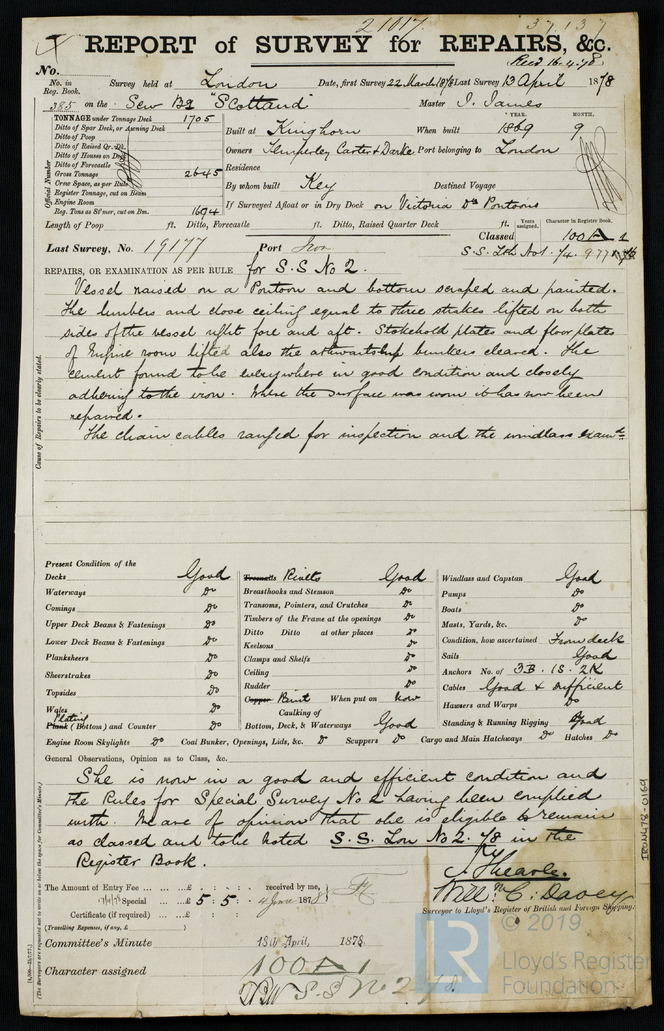 21017. 37,137
REPORT of SURVEY for REPAIRS, &c.
Recd 16.4.78
No.
No. in Reg. Book. Survey held at London Date, first Survey 22 March 1878 Last Survey 13 April 1878
385 on the Scw Bg "Scotland" Master J. James
TONNAGE under Tonnage Deck 1705
Ditto of Spar Deck, or Awning Deck
Ditto of Poop
Ditto of Raised Qr. Dk.
Ditto of Houses on Deck
Ditto of Forecastle
Gross Tonnage 2645
Crew Space, as per Rule
Register Tonnage, cut on Beam
Engine Room
Reg. Tons as St'mer, cut on Bm. 1694
Official Number
Built at Kinghorn When built YEAR. 1869 MONTH. 9
Owners Temperley Carter & Darke Port belonging to London
Residence
By whom built Key Destined Voyage
If Surveyed Afloat or in Dry Dock on Victoria Dk Pontoons
Length of Poop ft. Ditto, Forecastle ft. Ditto, Raised Quarter Deck ft.
Years assigned. Character in Register Book.
Classed 100 A 1
Last Survey, No. 19177 Port Lon
S.S. Lon No1. 74 9.77
REPAIRS, OR EXAMINATION AS PER RULE for S.S No 2.
Vessel raised on a Pontoon and bottom scraped and painted.
The limbers and close ceiling equal to three strakes lifted on both
sides of the vessel right fore and aft. Stokehold plates and floor plates
of Engine room lifted also the athwartship bunkers cleared. The
cement found to be everywhere in good condition and closely
adhering to the iron. Where the surface was worn it has now been
repaired.
The chain cables ranged for inspection and the windlass examd
Cause of Repairs to be clearly stated.
Present Condition of the
Decks Good
Waterways Do
Comings Do
Upper Deck Beams & Fastenings Do
Lower Deck Beams & Fastenings Do
Planksheers Do
Sheerstrakes Do
Topsides Do
Wales Do
Plating
Plank (Bottom) and Counter Do
Treenails Rivets Good
Breasthooks and Stemson Do
Transoms, Pointers, and Crutches Do
Timbers of the Frame at the openings Do
Ditto Ditto at other places Do
Keelsons Do
Clamps and Shelfs Do
Ceiling Do
Rudder Do
Copper Paint When put on now
Caulking of
Bottom, Deck, & Waterways Good
Windlass and Capstan Good
Pumps Do
Boats Do
Masts, Yards, &c. Do
Condition, how ascertained From deck
Sails Good
Anchors No. of 3B. 1S. 2K
Cables Good & Sufficient
Hawsers and Warps Do
Standing & Running Rigging Good
Engine Room Skylights Do Coal Bunker, Openings, Lids, &c. Do Scuppers Do Cargo and Main Hatchways Do Hatches Do
General Observations, Opinion as to Class, &c.
She is now in a good and efficient condition and
the Rules for Special Survey No 2 having been complied
with. We are of opinion that she is eligible to remain
as classed and to be noted S.S. Lon No 2. 78 in the
Register Book.
(The Surveyors are requested not to write on or below the space for Committee's Minute.)
J Hearle.
Willm C. Davey
Surveyor to Lloyd's Register of British and Foreign Shipping.
The Amount of Entry Fee ... ... £ : : received by me,
Special ... £ 5 : 5 : 4 June 1878
Certificate (if required) ... £ : :
(Travelling Expenses, if any, £ )
Committee's Minute 18th April, 1878.
Character assigned 100 A 1
S.S No 2 78
IRON478-0169
© 2019
Lloyd's Register
Foundation
LR